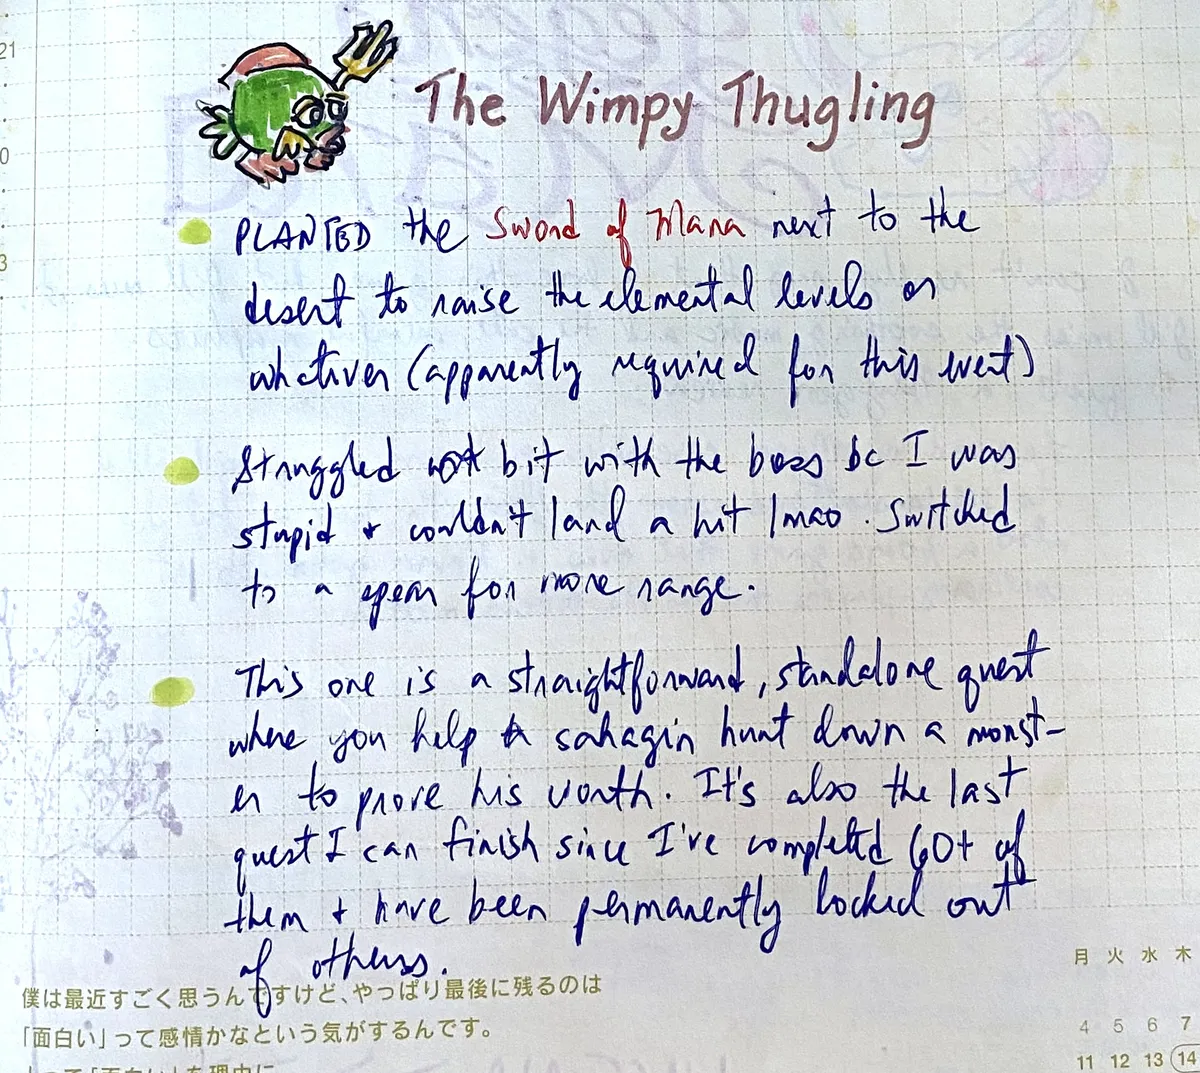 The Wimpy Thugling
PLANTED the Sword of Mana next to the
desert to raise the elemental levels or
whatever (apparently required for this event)
Struggled bit with the boss bc I was
stupid + couldn't land a hit lmao. Switched
to a spear for more range.
This one is a straightforward, standalone quest
where you help a sahagin hunt down a monst-
er to prove his worth. It's also the last
quest I can finish since I've completed 60+ of
them + have been permanently locked out
of others.
僕は最近すごく思うんですけど、やっぱり最後に残るのは
「面白い」って感情かなという気がするんです。
月 火 水 木
4 5 6 7
11 12 13 14
21
0
3